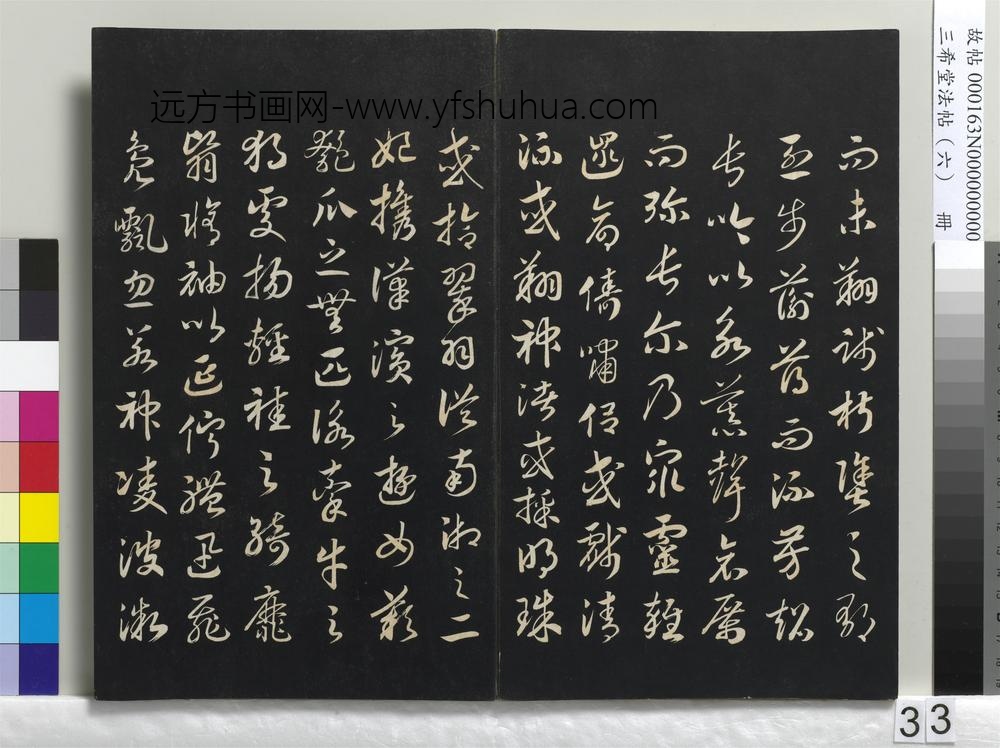 远方书画网-www.yfshuhua.com
而未翔踐椒塗之郁
烈步蘅薄而流芳超
長吟以永慕聲哀厲
而弥長尔乃眾靈雜
遝命儔嘯侶或戲清
流或翔神渚或採明珠
或拾翠羽從南湘之二
妃攜漢濱之遊女歎
匏瓜之無匹詠牽牛之
獨處揚輕袿之綺靡
翳脩袖以延佇體迅飛
鳧飄忽若神凌波微
故帖 000163N000000000
三希堂法帖（六） 冊
33